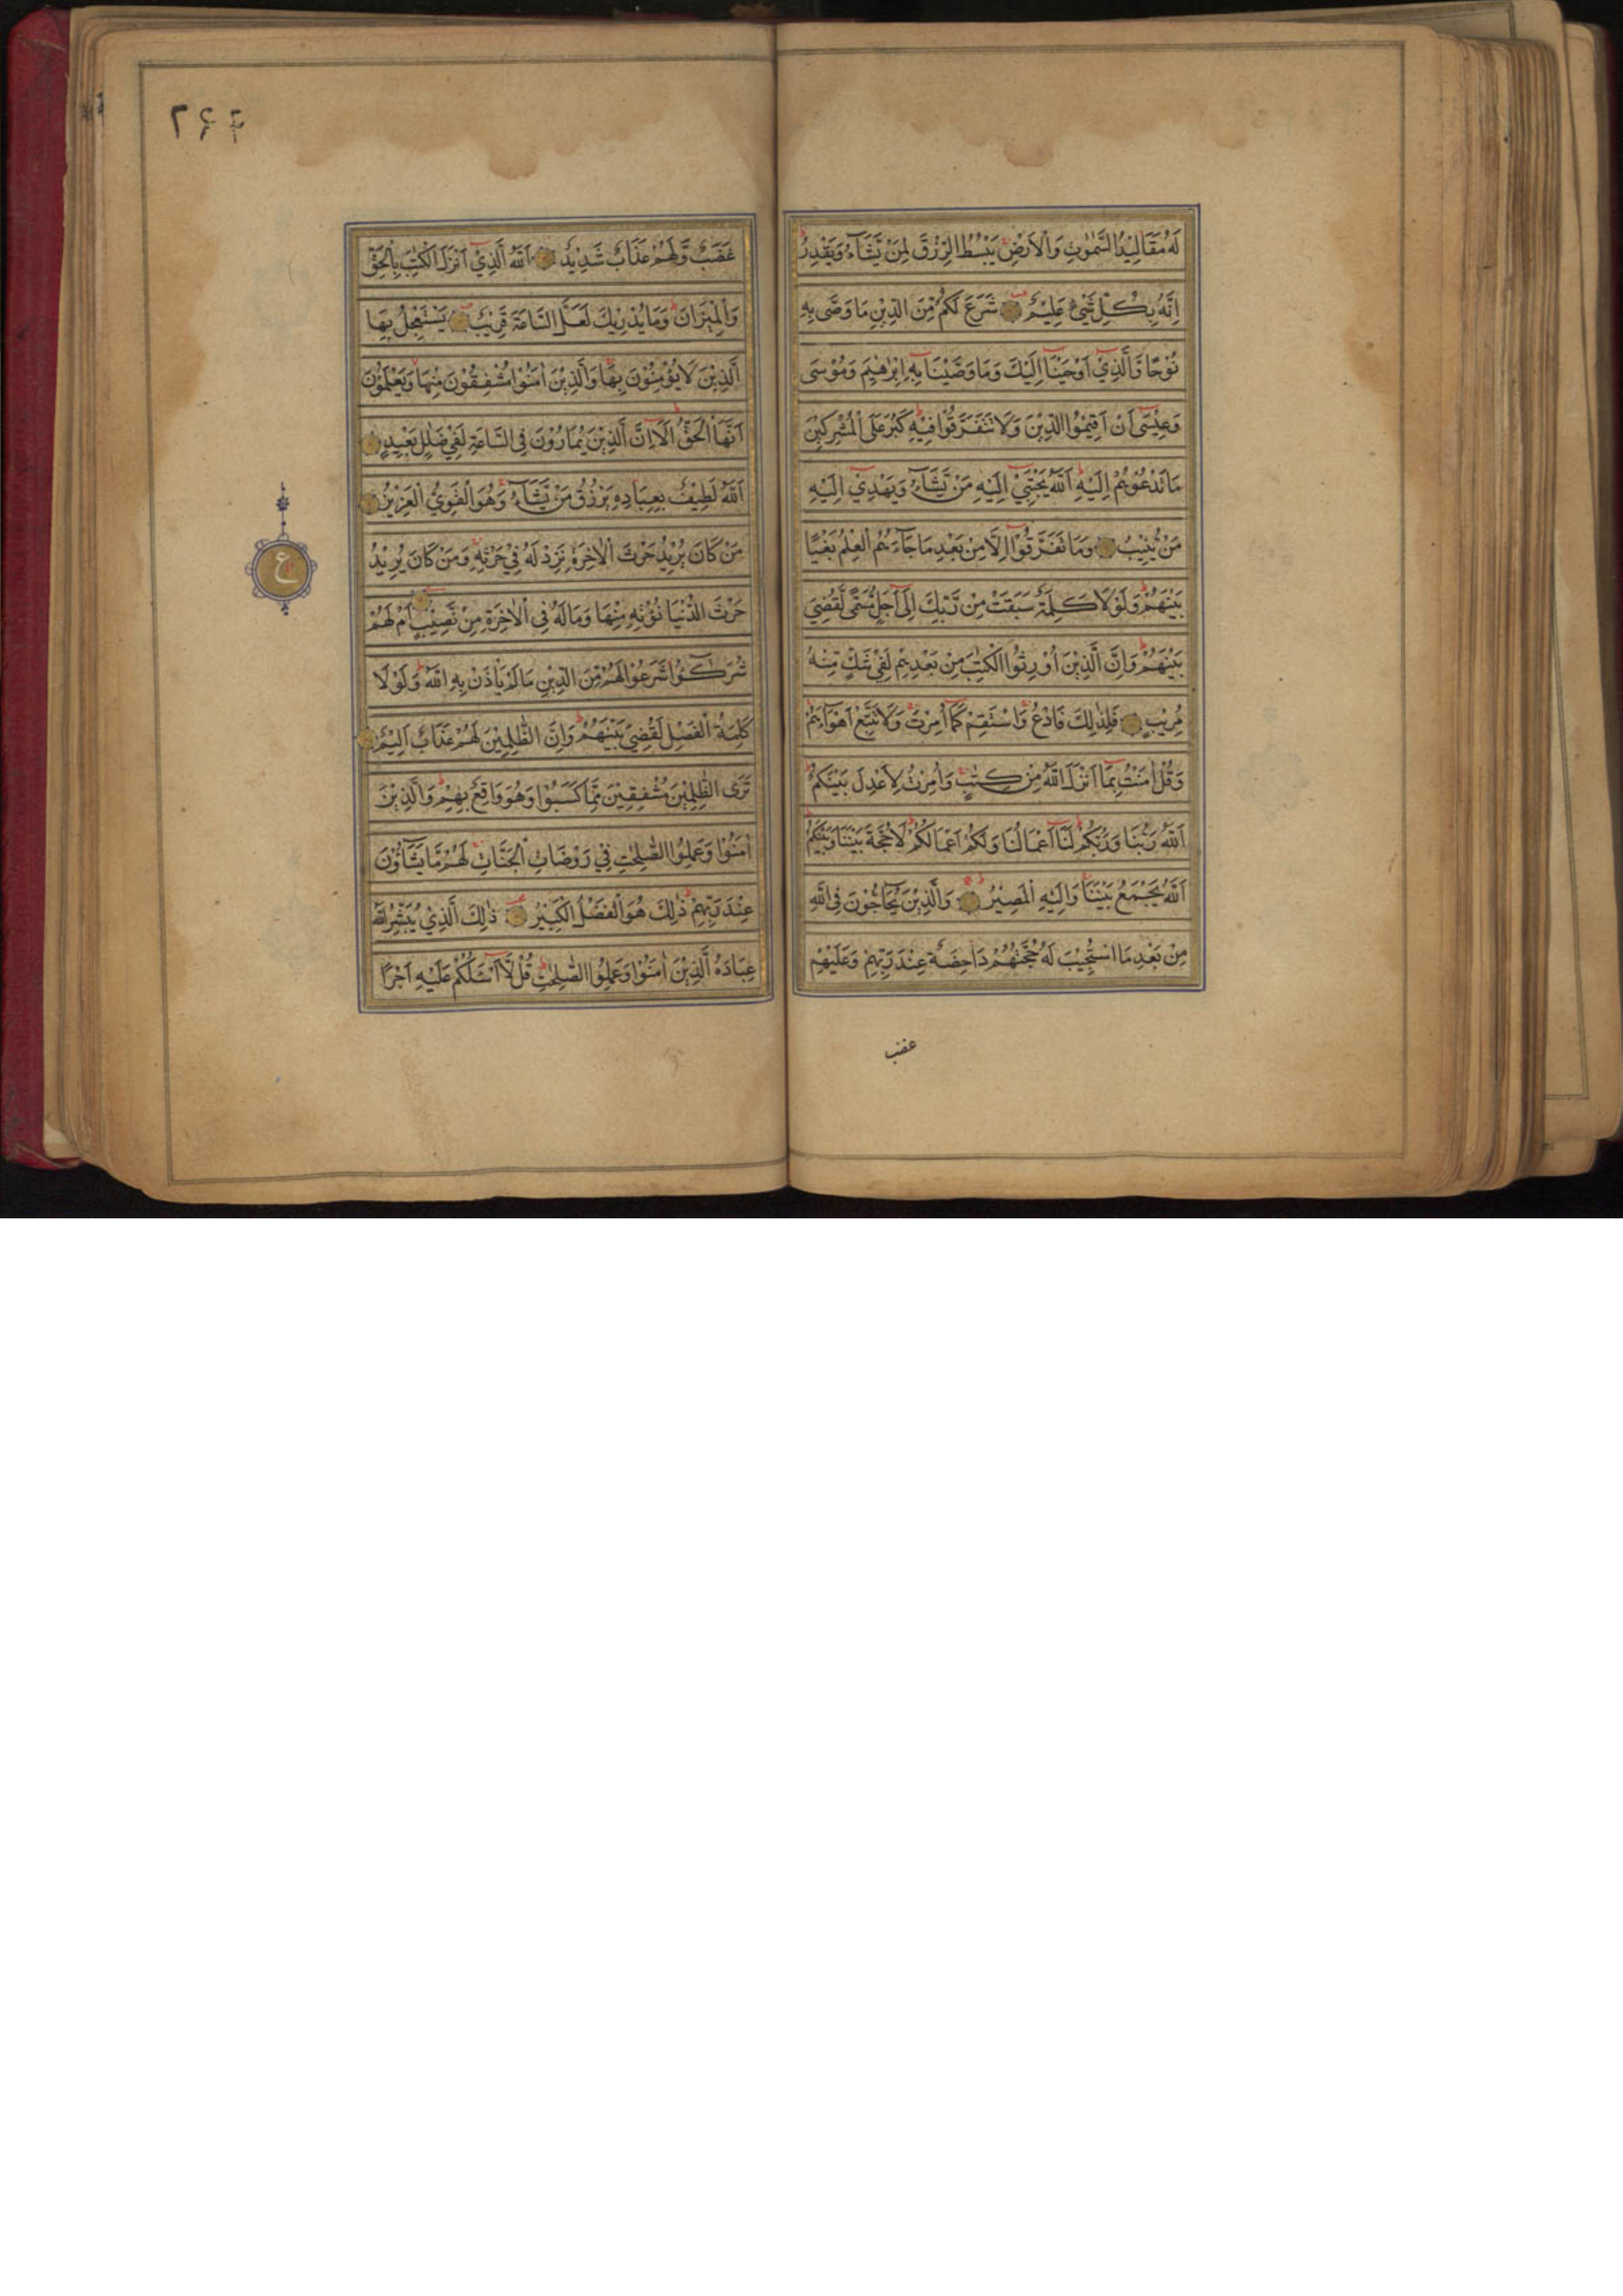 لَهُ مَقَالِيْدُ السَّمٰوٰتِ وَالْاَرْضِ يَبْسُطُ الرِّزْقَ لِمَنْ يَّشَآءُ وَيَقْدِرُ
اِنَّهُ بِكُلِّ شَيْءٍ عَلِيْمٌ شَرَعَ لَكُمْ مِّنَ الدِّيْنِ مَا وَصّٰى بِهٖ
نُوْحًا وَّالَّذِيْٓ اَوْحَيْنَآ اِلَيْكَ وَمَا وَصَّيْنَا بِهٖٓ اِبْرٰهِيْمَ وَمُوْسٰى
وَعِيْسٰٓى اَنْ اَقِيْمُوا الدِّيْنَ وَلَا تَتَفَرَّقُوْا فِيْهِ كَبُرَ عَلَى الْمُشْرِكِيْنَ
مَا تَدْعُوْهُمْ اِلَيْهِ اَللّٰهُ يَجْتَبِيْٓ اِلَيْهِ مَنْ يَّشَآءُ وَيَهْدِيْٓ اِلَيْهِ
مَنْ يُّنِيْبُ وَمَا تَفَرَّقُوْٓا اِلَّا مِنْ بَعْدِ مَا جَآءَهُمُ الْعِلْمُ بَغْيًا
بَيْنَهُمْ وَلَوْلَا كَلِمَةٌ سَبَقَتْ مِنْ رَّبِّكَ اِلٰٓى اَجَلٍ مُّسَمًّى لَّقُضِيَ
بَيْنَهُمْ وَاِنَّ الَّذِيْنَ اُوْرِثُوا الْكِتٰبَ مِنْ بَعْدِهِمْ لَفِيْ شَكٍّ مِّنْهُ
مُرِيْبٍ فَلِذٰلِكَ فَادْعُ وَاسْتَقِمْ كَمَآ اُمِرْتَ وَلَا تَتَّبِعْ اَهْوَآءَهُمْ
وَقُلْ اٰمَنْتُ بِمَآ اَنْزَلَ اللّٰهُ مِنْ كِتٰبٍ وَاُمِرْتُ لِاَعْدِلَ بَيْنَكُمْ
اَللّٰهُ رَبُّنَا وَرَبُّكُمْ لَنَآ اَعْمَالُنَا وَلَكُمْ اَعْمَالُكُمْ لَا حُجَّةَ بَيْنَنَا وَبَيْنَكُمْ
اَللّٰهُ يَجْمَعُ بَيْنَنَا وَاِلَيْهِ الْمَصِيْرُ وَالَّذِيْنَ يُحَآجُّوْنَ فِي اللّٰهِ
مِنْ بَعْدِ مَا اسْتُجِيْبَ لَهُ حُجَّتُهُمْ دَاحِضَةٌ عِنْدَ رَبِّهِمْ وَعَلَيْهِمْ
غضب
غَضَبٌ وَّلَهُمْ عَذَابٌ شَدِيْدٌ اَللّٰهُ الَّذِيْٓ اَنْزَلَ الْكِتٰبَ بِالْحَقِّ
وَالْمِيْزَانَ وَمَا يُدْرِيْكَ لَعَلَّ السَّاعَةَ قَرِيْبٌ يَسْتَعْجِلُ بِهَا
الَّذِيْنَ لَا يُؤْمِنُوْنَ بِهَا وَالَّذِيْنَ اٰمَنُوْا مُشْفِقُوْنَ مِنْهَا وَيَعْلَمُوْنَ
اَنَّهَا الْحَقُّ اَلَآ اِنَّ الَّذِيْنَ يُمَارُوْنَ فِى السَّاعَةِ لَفِيْ ضَلٰلٍ بَعِيْدٍ
اَللّٰهُ لَطِيْفٌ بِعِبَادِهٖ يَرْزُقُ مَنْ يَّشَآءُ وَهُوَ الْقَوِيُّ الْعَزِيْزُ
مَنْ كَانَ يُرِيْدُ حَرْثَ الْاٰخِرَةِ نَزِدْ لَهُ فِيْ حَرْثِهٖ وَمَنْ كَانَ يُرِيْدُ
حَرْثَ الدُّنْيَا نُؤْتِهٖ مِنْهَا وَمَا لَهُ فِى الْاٰخِرَةِ مِنْ نَّصِيْبٍ اَمْ لَهُمْ
شُرَكٰٓؤُا شَرَعُوْا لَهُمْ مِّنَ الدِّيْنِ مَا لَمْ يَاْذَنْ بِهِ اللّٰهُ وَلَوْلَا
كَلِمَةُ الْفَصْلِ لَقُضِيَ بَيْنَهُمْ وَاِنَّ الظّٰلِمِيْنَ لَهُمْ عَذَابٌ اَلِيْمٌ
تَرَى الظّٰلِمِيْنَ مُشْفِقِيْنَ مِمَّا كَسَبُوْا وَهُوَ وَاقِعٌ بِهِمْ وَالَّذِيْنَ
اٰمَنُوْا وَعَمِلُوا الصّٰلِحٰتِ فِيْ رَوْضَاتِ الْجَنَّاتِ لَهُمْ مَّا يَشَآؤُنَ
عِنْدَ رَبِّهِمْ ذٰلِكَ هُوَ الْفَضْلُ الْكَبِيْرُ ذٰلِكَ الَّذِيْ يُبَشِّرُ اللّٰهُ
عِبَادَهُ الَّذِيْنَ اٰمَنُوْا وَعَمِلُوا الصّٰلِحٰتِ قُلْ لَّآ اَسْـَٔلُكُمْ عَلَيْهِ اَجْرًا
ع